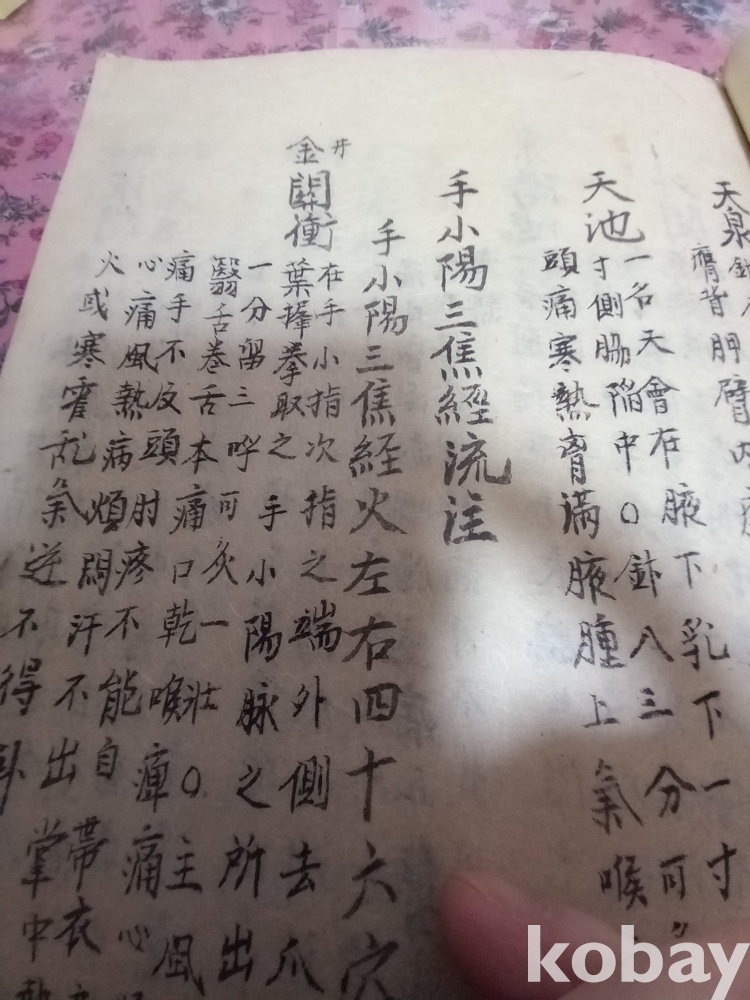 天泉
鍼
膺背胛臂內
天池
一名天會在腋下乳下一寸
側脇陷中○鉢八三分可
頭痛寒熱胷滿腋腫上氣喉
手小陽三焦經流注
手小陽三焦経火左右四十六穴
金井關衝
在手小指次指之端外側去爪
葉擇拳取之 手小陽脉之所出
一分留三呼可灸一壯○主風
翳舌卷舌本痛口乾喉痺痛心
痛手不及頭肘疼不能自帶衣
心痛風熱病煩悶汗不出掌中熱
火或寒霍乱氣逆不得卧
kobay